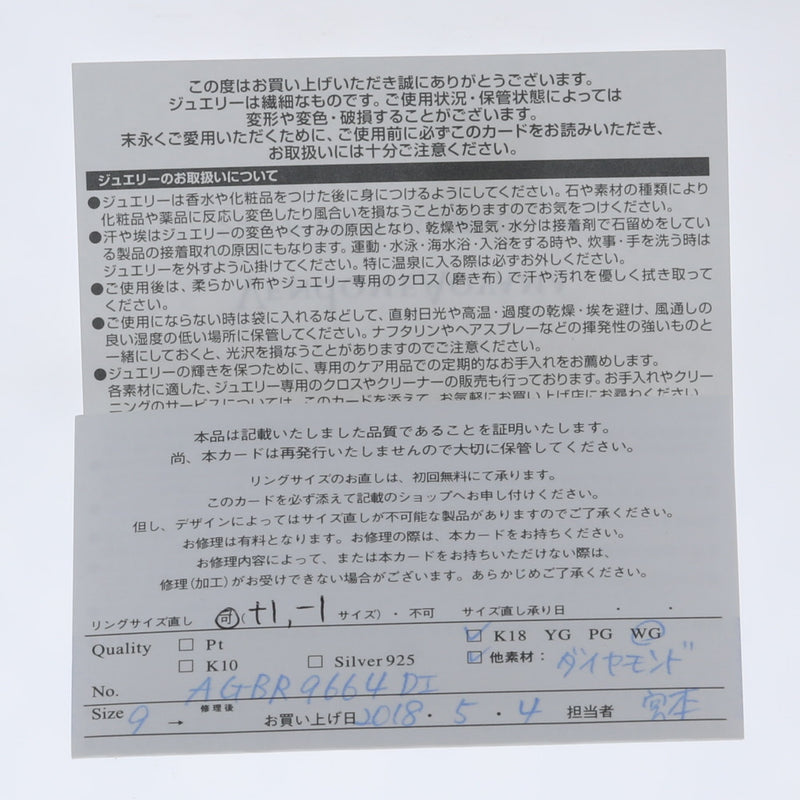 この度はお買い上げいただき誠にありがとうございます。
ジュエリーは繊細なものです。ご使用状況・保管状態によっては
変形や変色・破損することがございます。
末永くご愛用いただくために、ご使用前に必ずこのカードをお読みいただき、
お取扱いには十分ご注意ください。
ジュエリーのお取扱いについて
●ジュエリーは香水や化粧品をつけた後に身につけるようにしてください。石や素材の種類により
化粧品や薬品に反応し変色したり風合いを損なうことがありますのでお気をつけください。
●汗や埃はジュエリーの変色やくすみの原因となり、乾燥や湿気・水分は接着剤で石留めをしてい
る製品の接着取れの原因にもなります。運動・水泳・海水浴・入浴をする時や、炊事・手を洗う時は
ジュエリーを外すよう心掛けてください。特に温泉に入る際は必ずお外しください。
●ご使用後は、柔らかい布やジュエリー専用のクロス(磨き布)で汗や汚れを優しく拭き取って
ください。
●ご使用にならない時は袋に入れるなどして、直射日光や高温・過度の乾燥・埃を避け、風通しの
良い湿度の低い場所に保管してください。ナフタリンやヘアスプレーなどの揮発性の強いものと
一緒にしておくと、光沢を損なうことがありますのでご注意ください。
●ジュエリーの輝きを保つために、専用のケア用品での定期的なお手入れをお薦めします。
各素材に適した、ジュエリー専用のクロスやクリーナーの販売も行っております。お手入れやクリー
ニングのサービスについては、このカードを添えて、お気軽にお買い上げ店にお尋ねください。
本品は記載いたしました品質であることを証明いたします。
尚、本カードは再発行いたしませんので大切に保管してください。
リングサイズのお直しは、初回無料にて承ります。
このカードを必ず添えて記載のショップへお申し付けください。
但し、デザインによってはサイズ直しが不可能な製品がありますのでご了承ください。
お修理は有料となります。お修理の際は、本カードをお持ちください。
お修理内容によって、または本カードをお持ちいただけない際は、
修理(加工)がお受けできない場合がございます。あらかじめご了承ください。
リングサイズ直し 可(+1,-1 サイズ)・不可 サイズ直し承り日 ・ ・
Quality □ Pt ☑ K18 YG PG WG
□ K10 □ Silver 925 ☑ 他素材: ダイヤモンド
No. AGBR9664DI
Size 9 → 修理後 お買い上げ日 2018・5・4 担当者 宮本